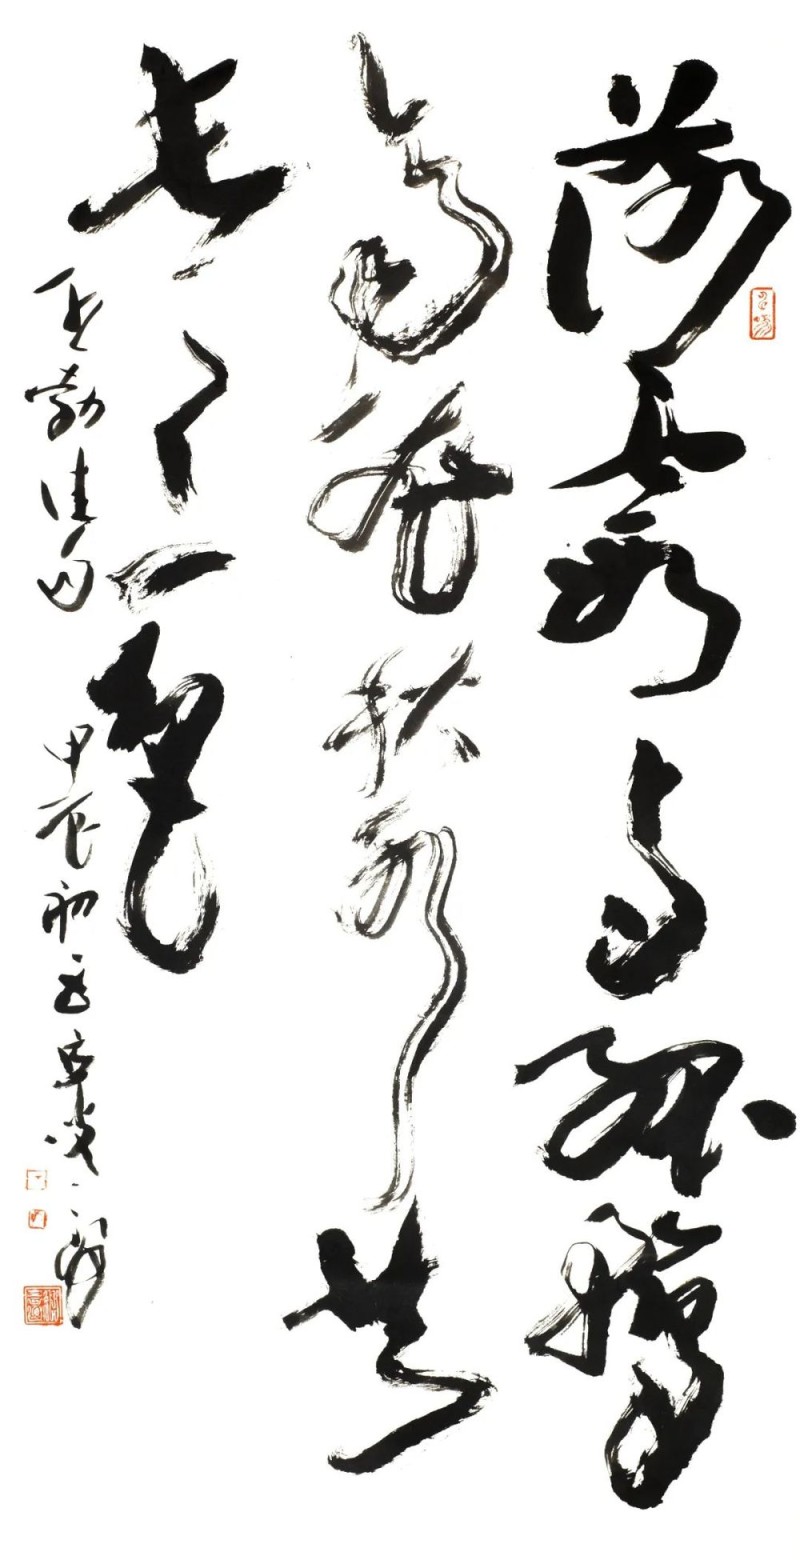 落霞与孤鹜
齊飛秋水共
長天一色
王勃佳句 甲辰初夏